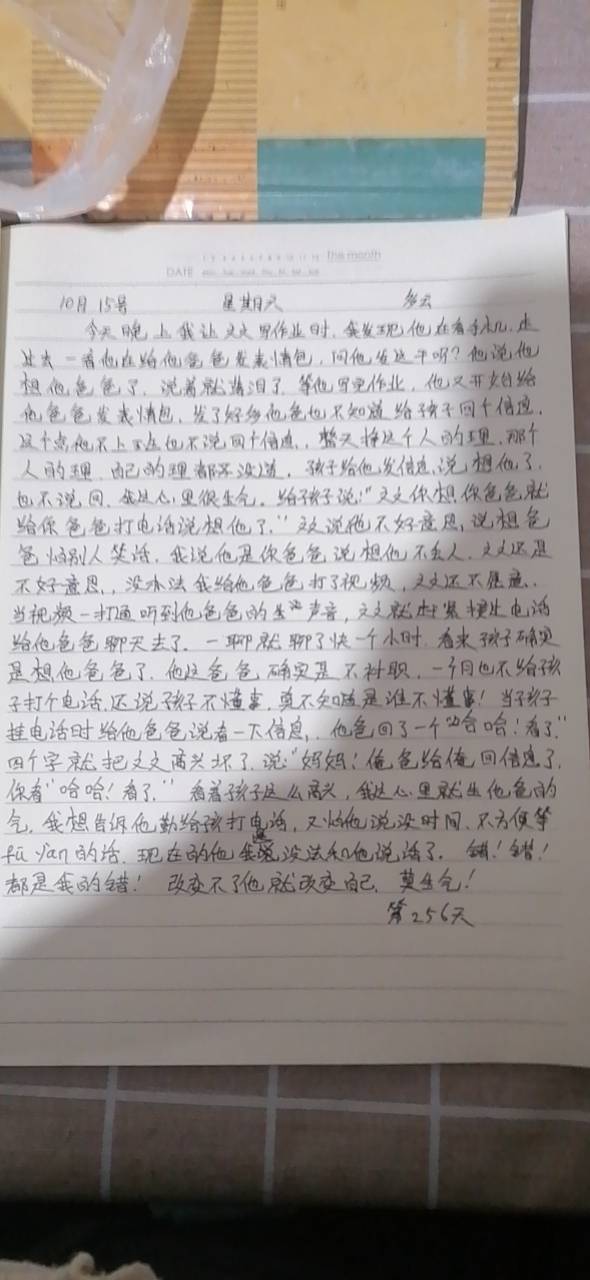 the month
DATE
10月15号 星期六 多云
今天晚上我让文文写作业时,我发现他在看手机,走
过去一看他在给他爸爸发表情包,问他发这干啥?他说他
想他爸爸了,说着就落泪了,等他写完作业,他又开始给
他爸爸发表情包,发了好多他爸也不知道给孩子回个信息,
这个点他不上不也不说回个信息,整天挣这个人的理,那个
人的理,自己的理都弄没道,孩子给他发信息说想他了,
也不说回,我这心里很生气,给孩子说:"文文你想你爸爸就
给你爸爸打电话说想他了。"文文说他不好意思,说想爸
爸怕别人笑话,我说他是你爸爸说想他不丢人,文文还是
不好意思,没办法我给他爸爸打了视频,文文还不愿意,
当视频一打通听到他爸爸的声音,文文就赶紧接过电话
给他爸爸聊天去了,一聊就聊了快一个小时,看来孩子确实
是想他爸爸了,他这爸爸确实是不衬职,一个月也不给孩
子打个电话,还说孩子不懂事,真不知道是谁不懂事!当孩子
挂电话时给他爸爸说看一下信息,他爸回了一个"哈哈!看了"
四个字就把文文高兴坏了,说"妈妈!俺爸给俺回信息了,
你看"哈哈!看了。"看着孩子这么高兴,我这心里就生他爸的
气,我想告诉他勤给孩子打电话,又怕他说没时间、不方便等
fū yǎn的话,现在的他我是没法和他说话了,错!错!
都是我的错!改变不了他就改变自己,莫生气!
第256天